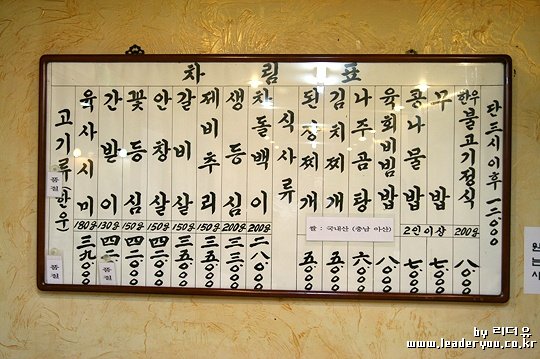 차림표
고기류(한우)
육사시미 180g 三九000
간받이 130g 四二000
꽃등심 150g 四二000
안창살 150g
갈비살 150g 三五000
제비추리 150g 三五000
생등심 200g 三三000
차돌백이 200g 二八000
식사류
된장찌개 五000
김치찌개 五000
나주곰탕 六000
육회비빔밥 八000
콩나물밥 七000
밥 七000
2인이상
한우불고기정식 200g 八000
단 三시 이후 一二000
쌀 : 국내산 (충남 아산)
품절
품절
품절
원
는
시
by 리더유
www.leaderyou.co.kr